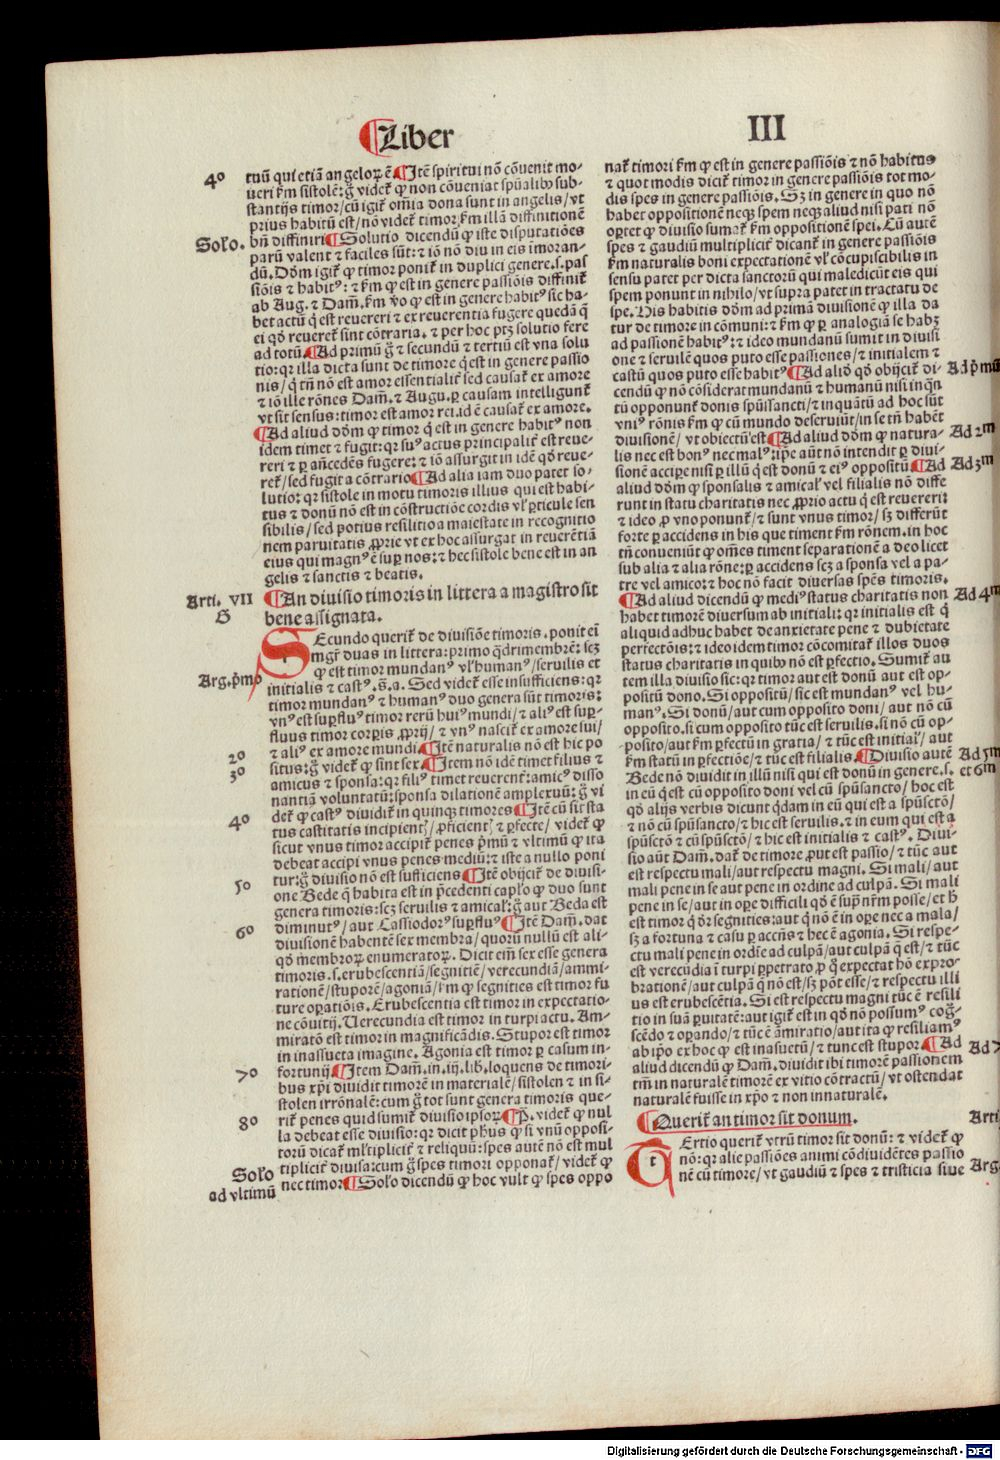 Liber
III
4o
tuū qui etiā angeloꝝ ē ¶Itē spiritui nō cōuenit mo-
ueri ẜm sistolē: ḡ videt̄ ꝙ non cōueniat spūalibꝰ sub-
stantijs timor/ cū igit̄ omīa dona sunt in angelis/ vt
prius habitū est/ nō videt̄ timor ẜm illā diffinitionē
Solo.
bn̄ diffiniri ¶Solutio dicendū ꝙ iste disputatiōes
parū valent ⁊ faciles sūt: ⁊ iō nō diu in eis īmoran-
dū. Dōm igit̄ ꝙ timor ponit̄ in duplici genere .s. pas
siōis ⁊ habitꝰ: ⁊ ẜm ꝙ est in genere passiōis diffinit̄
ab Aug. ⁊ Dam̄. ẜm v̄o ꝙ est in genere habitꝰ sic ha-
bet actū q̄ est reuereri ⁊ ex reuerentia fugere quedā q̄
ei qd̄ reueret̄ sint cōtraria. ⁊ per hoc ptꝫ solutio fere
ad totū. ¶Ad primū ḡ ⁊ secundū ⁊ tertiū est vna solu
tio: qꝛ illa dicta sunt de timore q̄ est in genere passio
nis/ q̄ tn̄ nō est amor essentialit̄ sed causat̄ ex amore
⁊ iō ille rōnes Dam̄. ⁊ Augu. ꝑ causam intelligunt̄
vt sit sensus: timor est amor rei .id ē causat̄ ex amore.
¶Ad aliud dōm ꝙ timor q̄ est in genere habitꝰ non
idem timet ⁊ fugit: qꝛ suꝰ actus principalit̄ est reue-
reri ⁊ ꝑ añcedēs fugere: ⁊ iō assurgit in idē qd̄ reue-
ret̄/ sed fugit a cōtrario ¶Ad alia iam duo patet so-
lutio: qꝛ sistole in motu timoris illius qui est habi-
tus ⁊ donū nō est in cōstructiōe cordis vl̓ ꝑticule sen
sibilis/ sed potius resilitio a maiestate in recognitio
nem paruitatis ꝓprie vt ex hoc assurgat in reuerētiā
eius qui magnꝰ ē sup̄ nos: ⁊ hec sistole bene est in an
gelis ⁊ sanctis ⁊ beatis.
Arti. VII
B
¶An diuisio timoris in littera a magistro sit
bene assignata.
SEcundo querit̄ de diuisiōe timoris. ponit eī
mgr̄ duas in littera: primo q̄drimembrē: scꝫ
ꝙ est timor mundanꝰ vl̓ humanꝰ/ seruilis et
Arg. p̄mo
initialis ⁊ castꝰ .ꝫ.a. Sed videt̄ esse insufficiens: qꝛ
timor mundanꝰ ⁊ humanꝰ duo genera sūt timoris:
vnꝰ est suꝑfluꝰ timor rerū huiꝰ mundi/ ⁊ aliꝰ est suꝑ-
fluus timor corꝑis ꝓprij/ ⁊ vnꝰ nascit̄ ex amore sui/
2o
⁊ aliꝰ ex amore mundi ¶Itē naturalis nō est hic po
3o
situs: ḡ videt̄ ꝙ sint sex ¶Item non idē timet filius ⁊
amicus ⁊ sponsa: qꝛ filiꝰ timet reuerent̄: amicꝰ disso
nantiā voluntatū: sponsa dilationē amplexuū: ḡ vi
det̄ ꝙ castꝰ diuidit̄ in quinqꝫ timores ¶Itē cū sit sta
4o
tus castitatis incipientꝭ/ ꝓficientꝭ ⁊ ꝑfecte/ videt̄ ꝙ
sicut vnus timor accipit̄ penes p̄mū ⁊ vltimū ꝙ ita
debeat accipi vnus penes mediū: ⁊ iste a nullo poni
tur: ḡ diuisio nō est sufficiens ¶Itē obijcit̄ de diuisi-
5o
one Bede q̄ habita est in p̄cedenti cap̄lo ꝙ duo sunt
genera timoris: scꝫ seruilis ⁊ amical̓: ḡ aut Beda est
diminutꝰ/ aut Cassiodorꝰ suꝑfluꝰ ¶Itē Dam̄. dat
6o
diuisionē habentē sex membra/ quorū nullū est ali-
qd̄ membroꝝ enumeratoꝝ. Dicit em̄ sex esse genera
timoris .s. erubescentiā/ segnitiē/ verecundiā/ ammi-
rationē/ stuporē/ agoniā/ ẜm ꝙ segnities est timor fu
ture oꝑatiōis. Erubescentia est timor in expectatio-
ne cōuitij. Verecundia est timor in turpi actu. Am-
miratō est timor in magnificādis. Stupor est timor
in inassueta imagine. Agonia est timor ꝑ casum in-
7o
fortunij ¶Item Dam̄. in .iij. lib. loquens de timori-
bus xp̄i diuidit timorē in materialē/ sistolen ⁊ in si-
stolen irrōnalē: cum ḡ tot sunt genera timoris que-
8o
rit̄ penes quid sumit̄ diuisio ipsoꝝ ¶P̄. videt̄ ꝙ nul
la debeat esse diuisio: qꝛ dicit ph̄us ꝙ si vnū opposi-
torū dicat̄ ml̓tiplicit̄ ⁊ reliquū: spes autē nō est mul
Solo
tiplicit̄ diuisa: cum ḡ spes timori opponat̄/ videt̄ ꝙ
ad vltimū
nec timor ¶Solo dicendū ꝙ hoc vult ꝙ spes oppo
nat̄ timori ẜm ꝙ est in genere passiōis ⁊ nō habitus
⁊ quot modis dicit̄ timor in genere passiōis tot mo-
dis spes in genere passiōis. Sꝫ in genere in quo nō
habet oppositionē neqꝫ spem neqꝫ aliud nisi pati nō
oꝑtet ꝙ diuisio sumat̄ ẜm oppositionē spei. Cū autē
spes ⁊ gaudiū multiplicit̄ dicant̄ in genere passiōis
ẜm naturalis boni expectationē vl̓ cōcupiscibilis in
sensu patet per dicta sanctorū qui maledicūt eis qui
spem ponunt in nihilo/ vt supra patet in tractatu de
spe. His habitis dōm ad primā diuisionē ꝙ illa da
tur de timore in cōmuni: ⁊ ẜm ꝙ ꝑ analogiā se habꝫ
ad passionē habitꝰ: ⁊ ideo mundanū sumit in diuisi
one ⁊ seruilē quos puto esse passiones/ ⁊ initialem ⁊
castū quos puto esse habitꝰ ¶Ad aliō qd̄ obijcit̄ di-
Ad p̄mū
cendū ꝙ nō cōsiderat mundanū ⁊ humanū nisi inq̄n
tū opponunt̄ donis spūssancti/ ⁊ inquātū ad hoc sūt
vniꝰ rōnis ẜm ꝙ cū mundo deseruiūt/ in se tn̄ habēt
diuisionē/ vt obiectū est ¶Ad aliud dōm ꝙ natura-
Ad 2m
lis nec est bonꝰ nec malꝰ: ip̄e aūt nō intendit ꝑ diui-
sionē accipe nisi ꝑ illū q̄ est donū ⁊ eiꝰ oppositū ¶Ad
Ad 3m
aliud dōm ꝙ sponsalis ⁊ amical̓ vel filialis nō diffe
runt in statu charitatis nec ꝓprio actu q̄ est reuereri:
⁊ ideo ꝓ vno ponunt̄/ ⁊ sunt vnus timor/ sꝫ differūt
forte ꝑ accidens in his que timent ẜm rōnem. in hoc
tn̄ conueniūt ꝙ om̄es timent separationē a deo licet
sub alia ⁊ alia rōne: ꝑ accidens scꝫ a sponsa vel a pa-
tre vel amico: ⁊ hoc nō facit diuersas spēs timoris.
¶Ad aliud dicendū ꝙ mediꝰ status charitatis non
Ad 4m
habet timorē diuersum ab initiali: qꝛ initialis est q̄
aliquid adhuc habet de anxietate pene ⁊ dubietate
perfectōis: ⁊ ideo idem timor cōcomitat̄ illos duos
status charitatis in quibꝰ nō est ꝑfectio. Sumit̄ au
tem illa diuisio sic: qꝛ timor aut est donū aut est op-
positū dono. Si oppositū/ sic est mundanꝰ vel hu-
manꝰ. Si donū/ aut cum opposito doni/ aut nō cū
opposito. si cum opposito tūc est seruilis. si nō cū op-
posito/ aut ẜm ꝑfectū in gratia/ ⁊ tūc est initial̓/ aut
ẜm statū in ꝑfectiōe/ ⁊ tūc est filialis. ¶Diuisio autē
Ad 5m
Bede nō diuidit in illū nisi qui est donū in genere .s.
et 6m
in eū q̄ est cū opposito doni vel cū spūsancto/ hoc est
qd̄ alijs verbis dicunt q̄dam in eū qui est a spūsctō/
⁊ nō cū spūsancto/ ⁊ hic est seruilis. ⁊ in eum qui est a
spūsctō ⁊ cū spūsctō/ ⁊ hic est initialis ⁊ castꝰ. Diui-
sio aūt Dam̄. dat̄ de timore ꝓut est passio/ ⁊ tūc aut
est respectu mali/ aut respectu magni. Si mali/ aut
mali pene in se aut pene in ordine ad culpā. Si mali
pene in se/ aut in oꝑe difficili qd̄ ē sup̄ n̄rm posse/ et h̄
est timor q̄ dr̄ segnities: aut q̄ nō ē in oꝑe nec a mala/
sꝫ a fortuna ⁊ casu ꝑ accn̄s ⁊ hec ē agonia. Si respe-
ctu mali pene in ordīe ad culpā/ aut culpā q̄ est/ ⁊ tūc
est verecūdia ī turpi ꝑpetrato ꝓ q̄ expectat hō expro-
brationē/ aut culpā q̄ nō est/ sꝫ pōt esse/ ⁊ respectu illi
us est erubescētia. Si est respectu magni tūc ē resili
tio in suā ꝑuitatē: aut igit̄ est in qd̄ nō possumꝰ coḡ-
scēdo ⁊ oꝑando/ ⁊ tūc ē āmiratio/ aut ita ꝙ resiliamꝰ
ab ip̄o ex hoc ꝙ est inasuetū/ ⁊ tunc est stupor ¶Ad
Ad 7
aliud dicendū ꝙ Dam̄. diuidit ibi timorē passionem
tm̄ in naturalē timorē ex vitio cōtractū/ vt ostendat
naturalē fuisse in xp̄o ⁊ non innaturalē.
¶Querit̄ an timor sit donum.
Arti
TErtio querit̄ vtrū timor sit donū: ⁊ videt̄ ꝙ
nō: qꝛ alie passiōes animi cōdiuidētes passio
Arg.
nē cū timore/ vt gaudiū ⁊ spes ⁊ tristicia siue
Digitalisierung gefördert durch die Deutsche Forschungsgemeinschaft - DFG